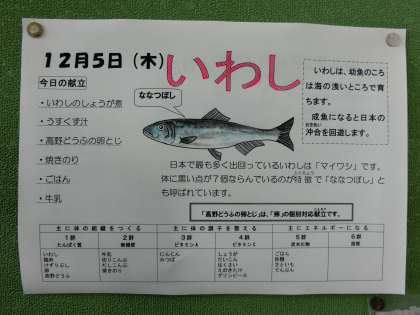 12月5日（木）
いわし
今日の献立
・いわしのしょうが煮
・うすくず汁
・高野どうふの卵とじ
・焼きのり
・ごはん
・牛乳
ななつぼし
いわしは、幼魚のころ
は海の浅いところで育
ちます。
成魚になると日本の
沖合を回遊します。
日本で最も多く出回っているいわしは「マイワシ」です。
体に黒い点が7個ならんでいるのが特徴で「ななつぼし」と
も呼ばれています。
「高野どうふの卵とじ」は、「卵」の個別対応献立です。
主に体の組織をつくる 主に体の調子を整える 主にエネルギーになる
1群 2群 3群 4群 5群 6群
たんぱく質 無機質 ビタミンA ビタミンC 炭水化物 脂質
いわし 牛乳 にんじん しょうが ごはん
鶏肉 切りこんぶ みつば だいこん 砂糖
けずりぶし だしこんぶ はくさい さといも
卵 焼きのり えのきたけ でんぷん
高野どうふ グリンピース